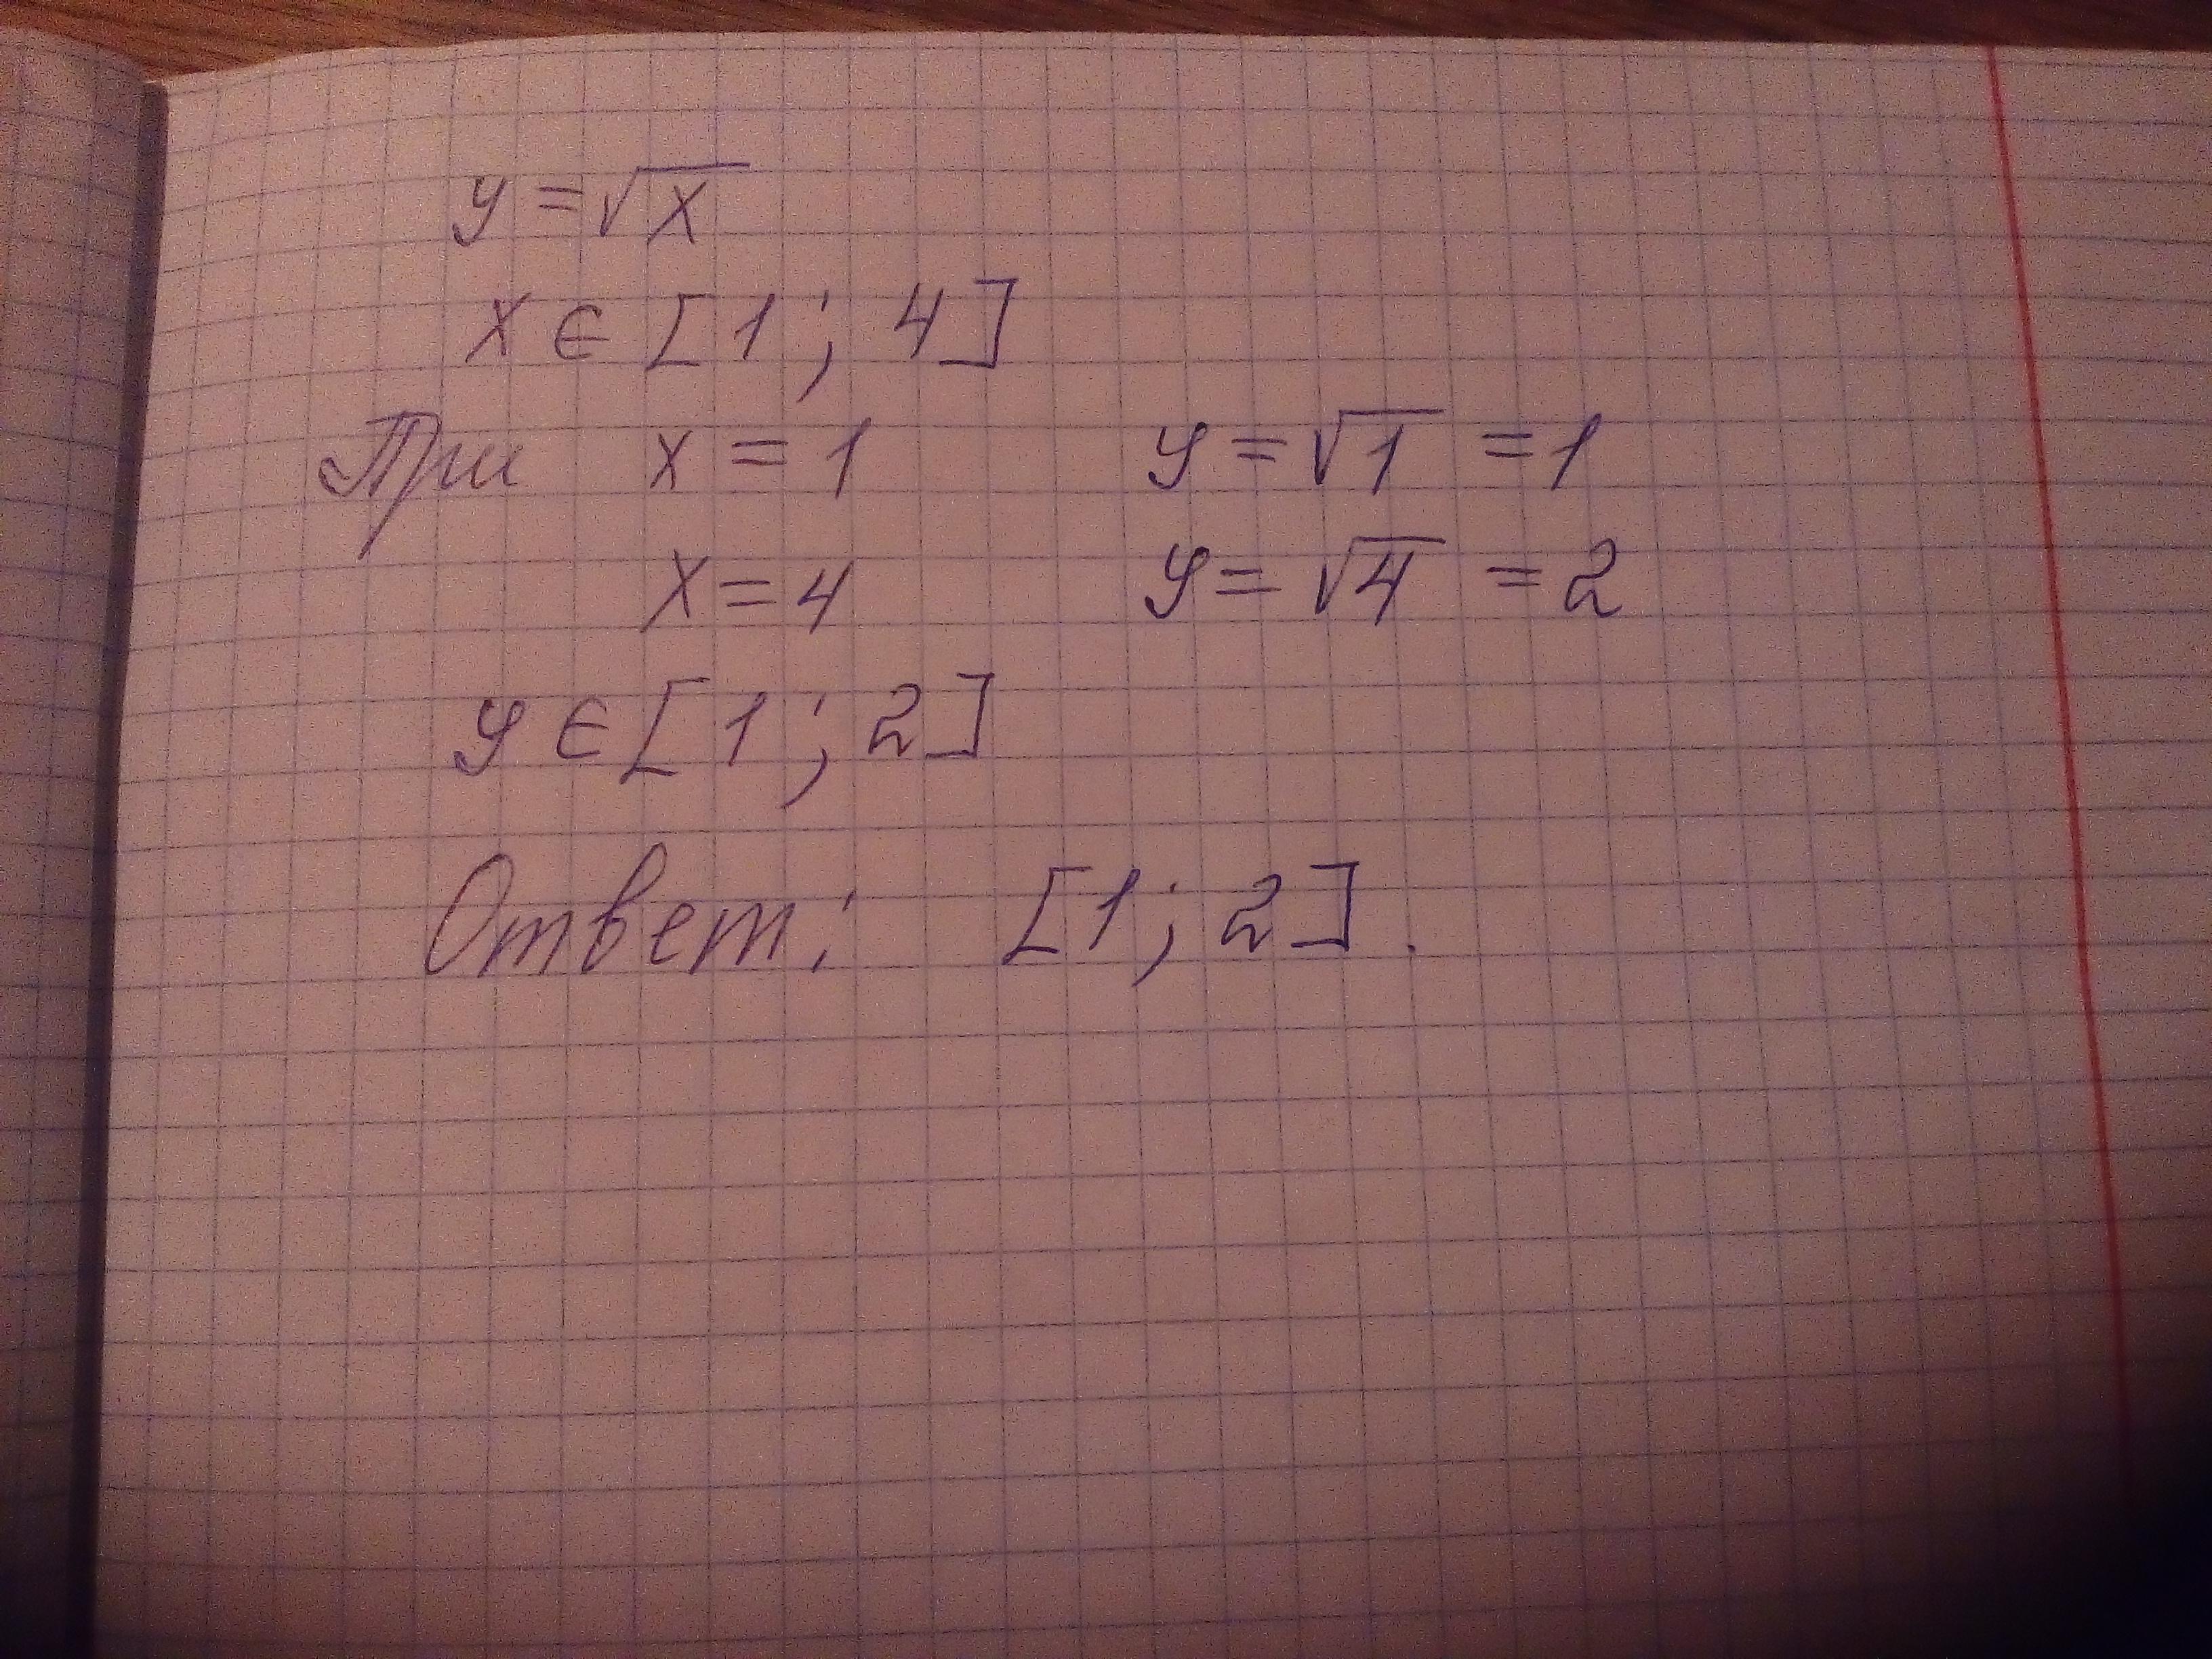 y = √x
x ∈ [1 ; 4]
При x = 1 y = √1 = 1
x = 4 y = √4 = 2
y ∈ [1 ; 2]
Ответ: [1 ; 2].